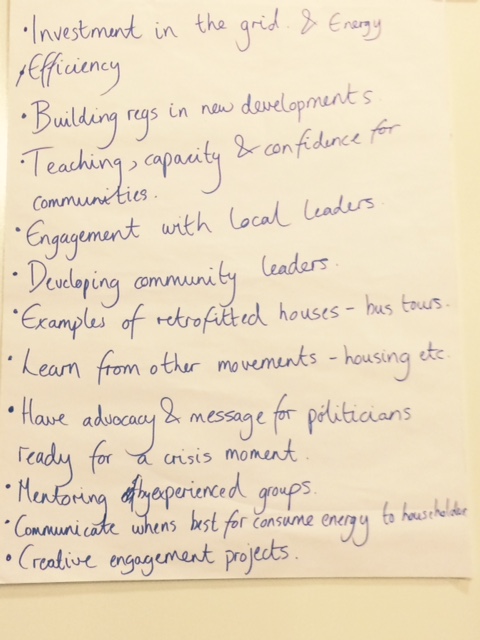 •Investment in the grid. & Energy
Efficiency
•Building regs in new developments.
•Teaching, capacity & confidence for
communities.
•Engagement with local leaders.
•Developing community leaders.
•Examples of retrofitted houses - bus tours.
•Learn from other movements - housing etc.
•Have advocacy & message for politicians
ready for a crisis moment.
•Mentoring by experienced groups.
•Communicate whens best for consume energy to householder
•Creative engagement projects.